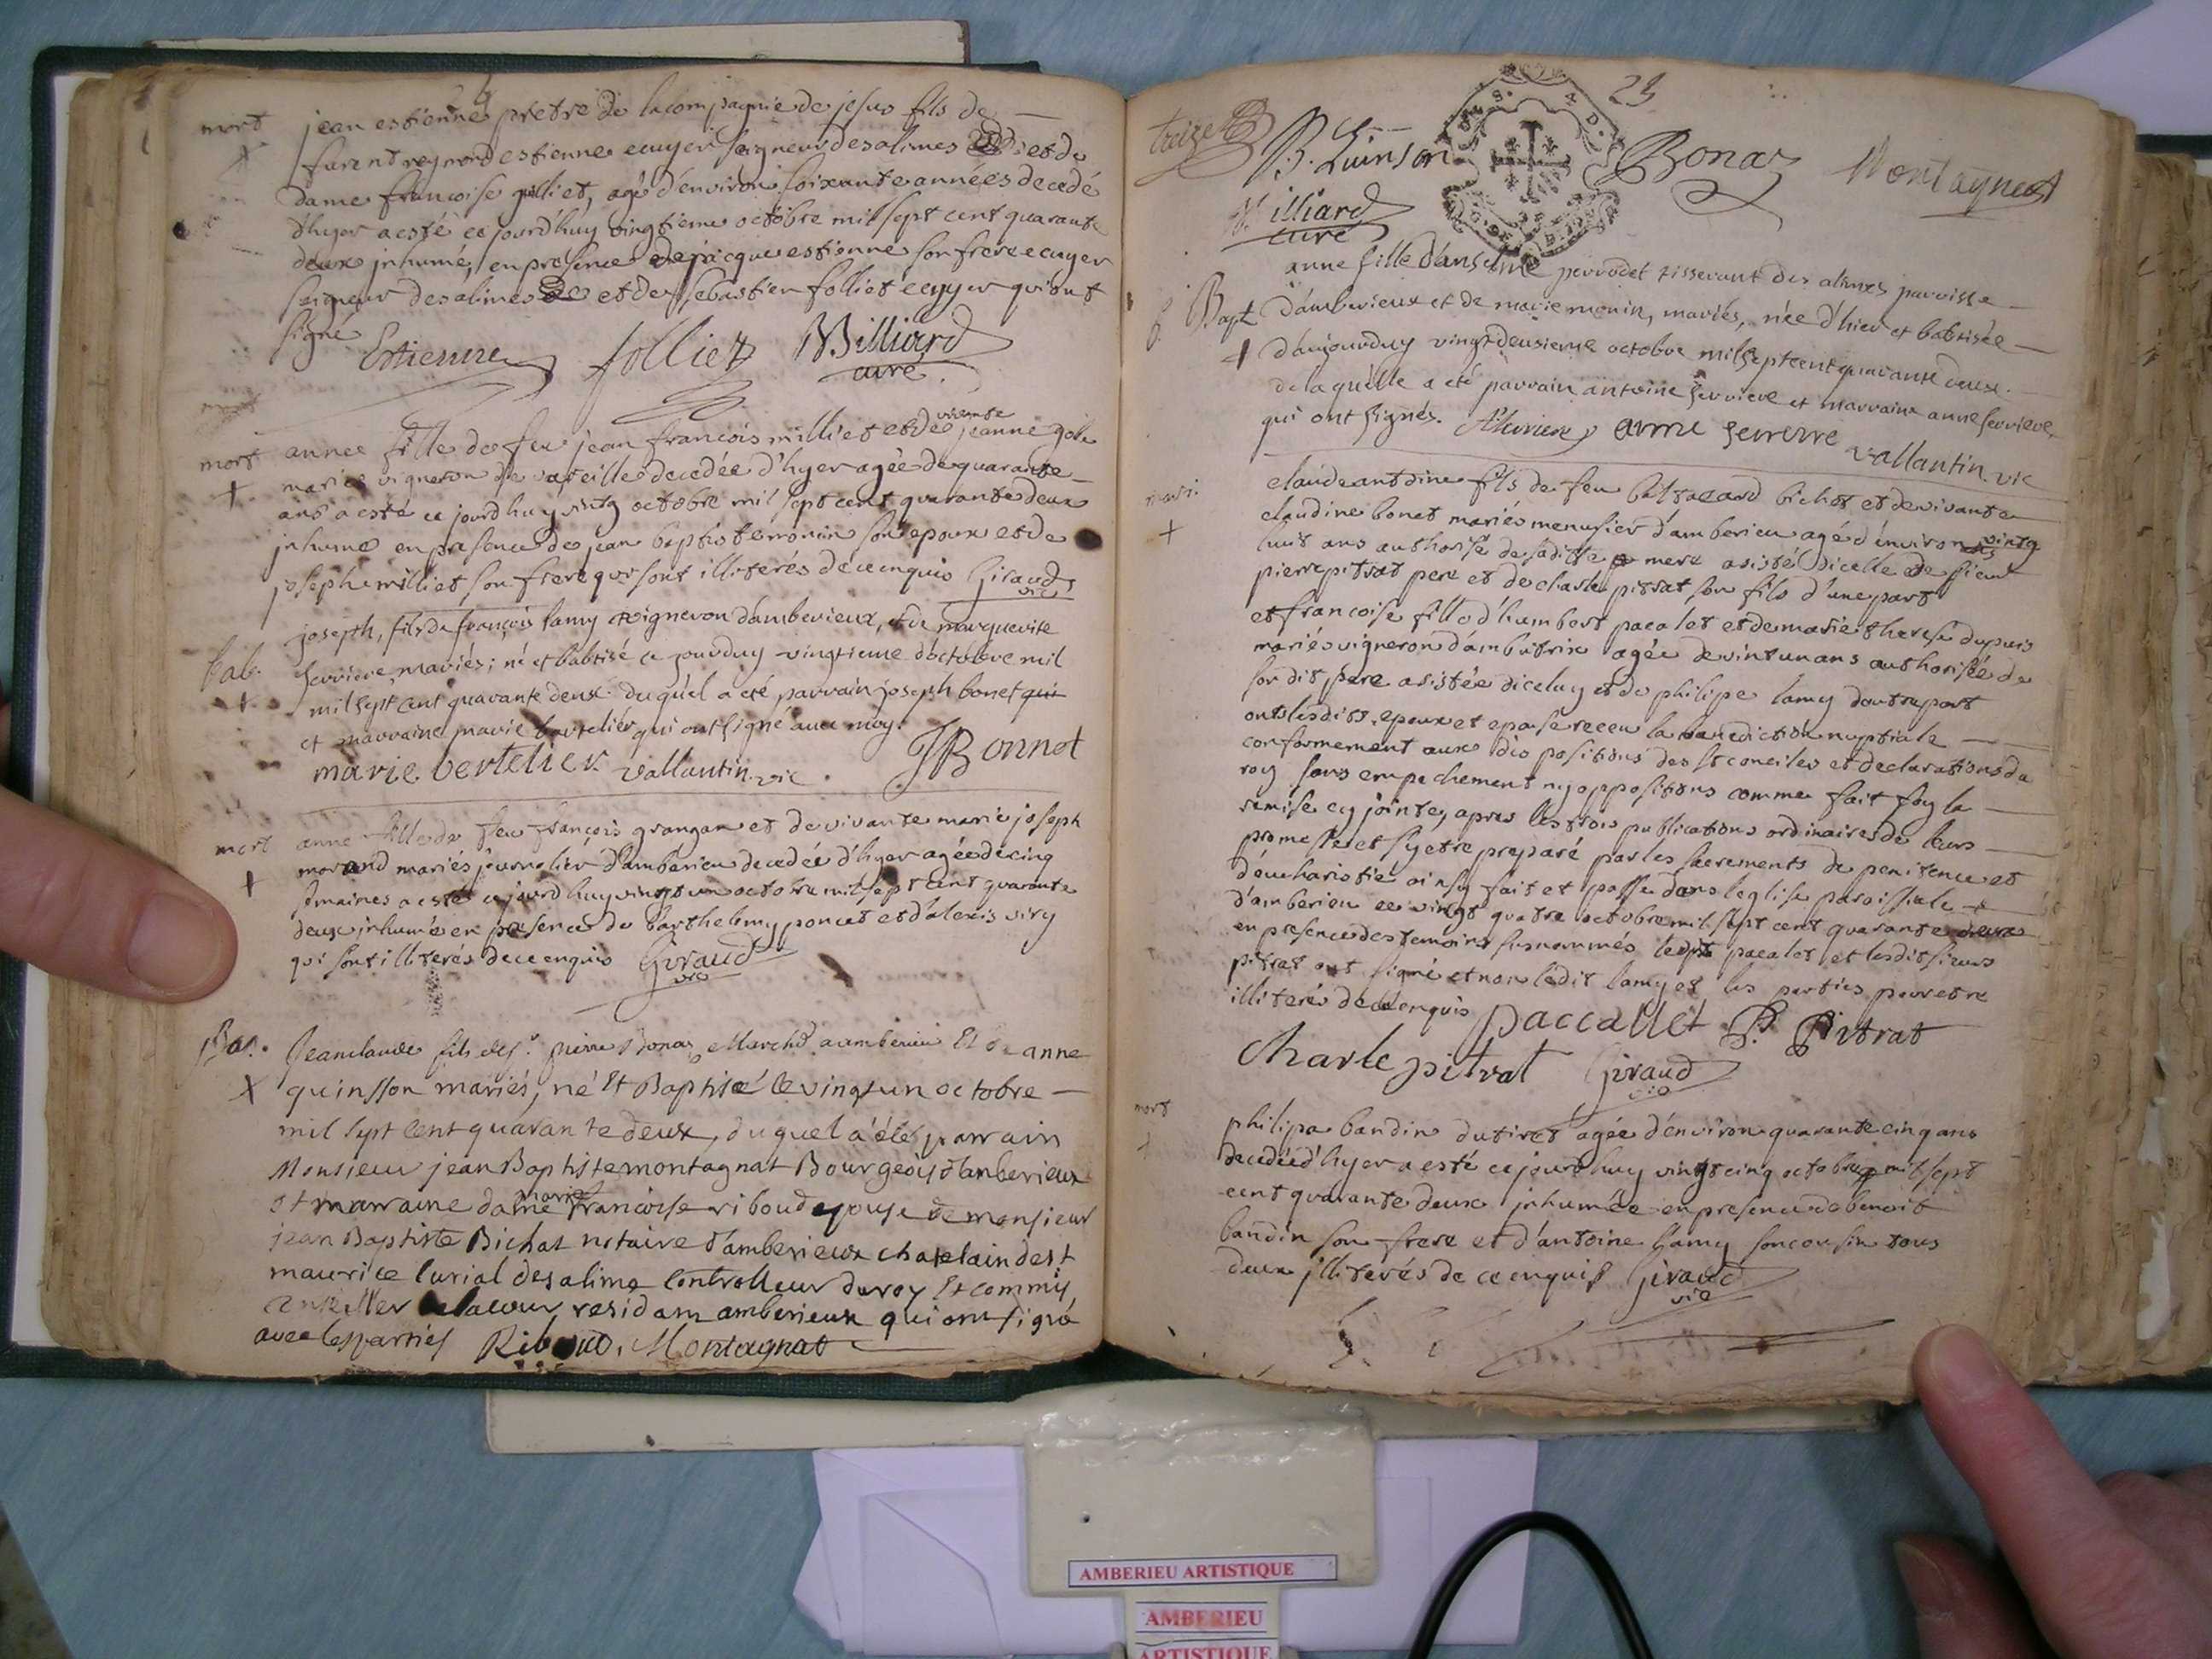 mort jean estienne pretre de la compagnie de jesus fils de
furent reymond estienne ecuyer seigneur des alimes et de
dame francoise gilliet, agé d'environ soixante années decedé
d'hyer a esté ce jourd'huy vingtieme octobre mil sept cent quarante
deux inhumé, en presence de jacque estienne son frere ecuyer
seigneur des alimes et de sebastien folliet ecuyer qui ont
signé Estienne folliet Milliard
curé
mort annee fille de feu jean francois milliet et de vivante jeanne
mariés vigneron de vareille decedée d'hyer agée de quarante
ans a esté ce jourd huy vingt octobre mil sept cent quarante deux
inhumé en presence de jean baptiste monin son epoux et de
joseph milliet son frere qui sont illiterés de ce enquis Giraud
vic
joseph, fils de françois lamy vigneron d'amberieux, et de marguerite
bab. serriere, mariés; né et babtisé ce jourduy vingtieme d'octobre mil
mil sept cent quarante deux. duquel a eté parrain joseph bonet qui
et marraine marie bertelier qui ont signé avec moy.
marie bertelier vallantin vic. J Bonnet
mort anne fille de feu françois grangar et de vivante marie joseph
morand mariés journalier d'amberieu decedée d'hyer agée de cinq
semaines a esté ce jourd huy vingt un octobre mil sept cent quarante
deux inhumée en presence de barthelemy poncet et d'alexis viry
qui sont illiterés de ce enquis Giraud
vic
Bap. Jeanclaude fils de sr. pierre Bonaz Marchd. a amberieu Et de anne
quinsson mariés, né Et Baptisé le vingt un octobre
mil sept cent quarante deux, duquel a été parrain
Monsieur jean Baptiste montagnat Bourgeois d'amberieux
et marraine dame marie francoise riboud epouse de monsieur
jean Baptiste Bichat notaire d'amberieux chatelain de st
maurice curial des alime Controlleur du roy Et commis
greffier de la cour residam amberieux qui ont signé
avec les parties Riboud, Montagnat
23
treize B. Quinson Bonaz Montagnat
Milliard
curé
anne fille d'anselme perrodet tisserant des alimes paroisse
Bapt d'amberieux et de marie monin, mariés, née d'hier et babtisée
d'aujourduy vingt deusieme octobre mil sept cent quarante deux.
de laquelle a eté parrain antoine serriere et marraine anne serriere
qui ont signés. A serriere anne serriere vallantin vic
claude antoine fils de feu baltazard bichot et de vivante
claudine bonet mariés menusier d'amberieu agé d'environ vintg
huit ans authorisé de sa ditte mere asisté dicelle de sieur
pierre pitrat pere et de charle pitrat son fils d'une part
et francoise fille d'humbert pacalet et de marie therese dupuis
mariés vigneron d'ambutrix agée de vint un ans authorisée de
son dit pere asistée diceluy et de philipe lamy dautre part
onts lesdits epoux et epouse receu la benediction nuptiale
conformement aux dispositions des st conciles et declarations du
roy sans empechement ny oppositions comme fait foy la
remise cy jointe, apres les trois publications ordinaires de leurs
promesse et s'y etre preparé par les sacrements de penitence et
d'eucharistie ainsy fait et passé dans leglise paroissiale
d'amberieu ce vingt quatre octobre mil sept cent quarante deux
en presence des temoins susnommés ledit pacalet et lesdits sieurs
pitrat ont signé et non ledit lamy et les parties pour etre
illiterés de ce enquis paccallet P. Pitrat
charle pitrat Giraud
vic
mort philipa bandin du tiret agée d'environ quarante cinq ans
decedée d'hyer a esté ce jourd huy vingt cinq octobre mil sept
cent quarante deux inhumée en presence de benoit
bandin son frere et d'antoine lamy son cousin tous
deux illiterés de ce enquis Giraud
vic
AMBERIEU ARTISTIQUE
AMBERIEU
ARTISTIQUE